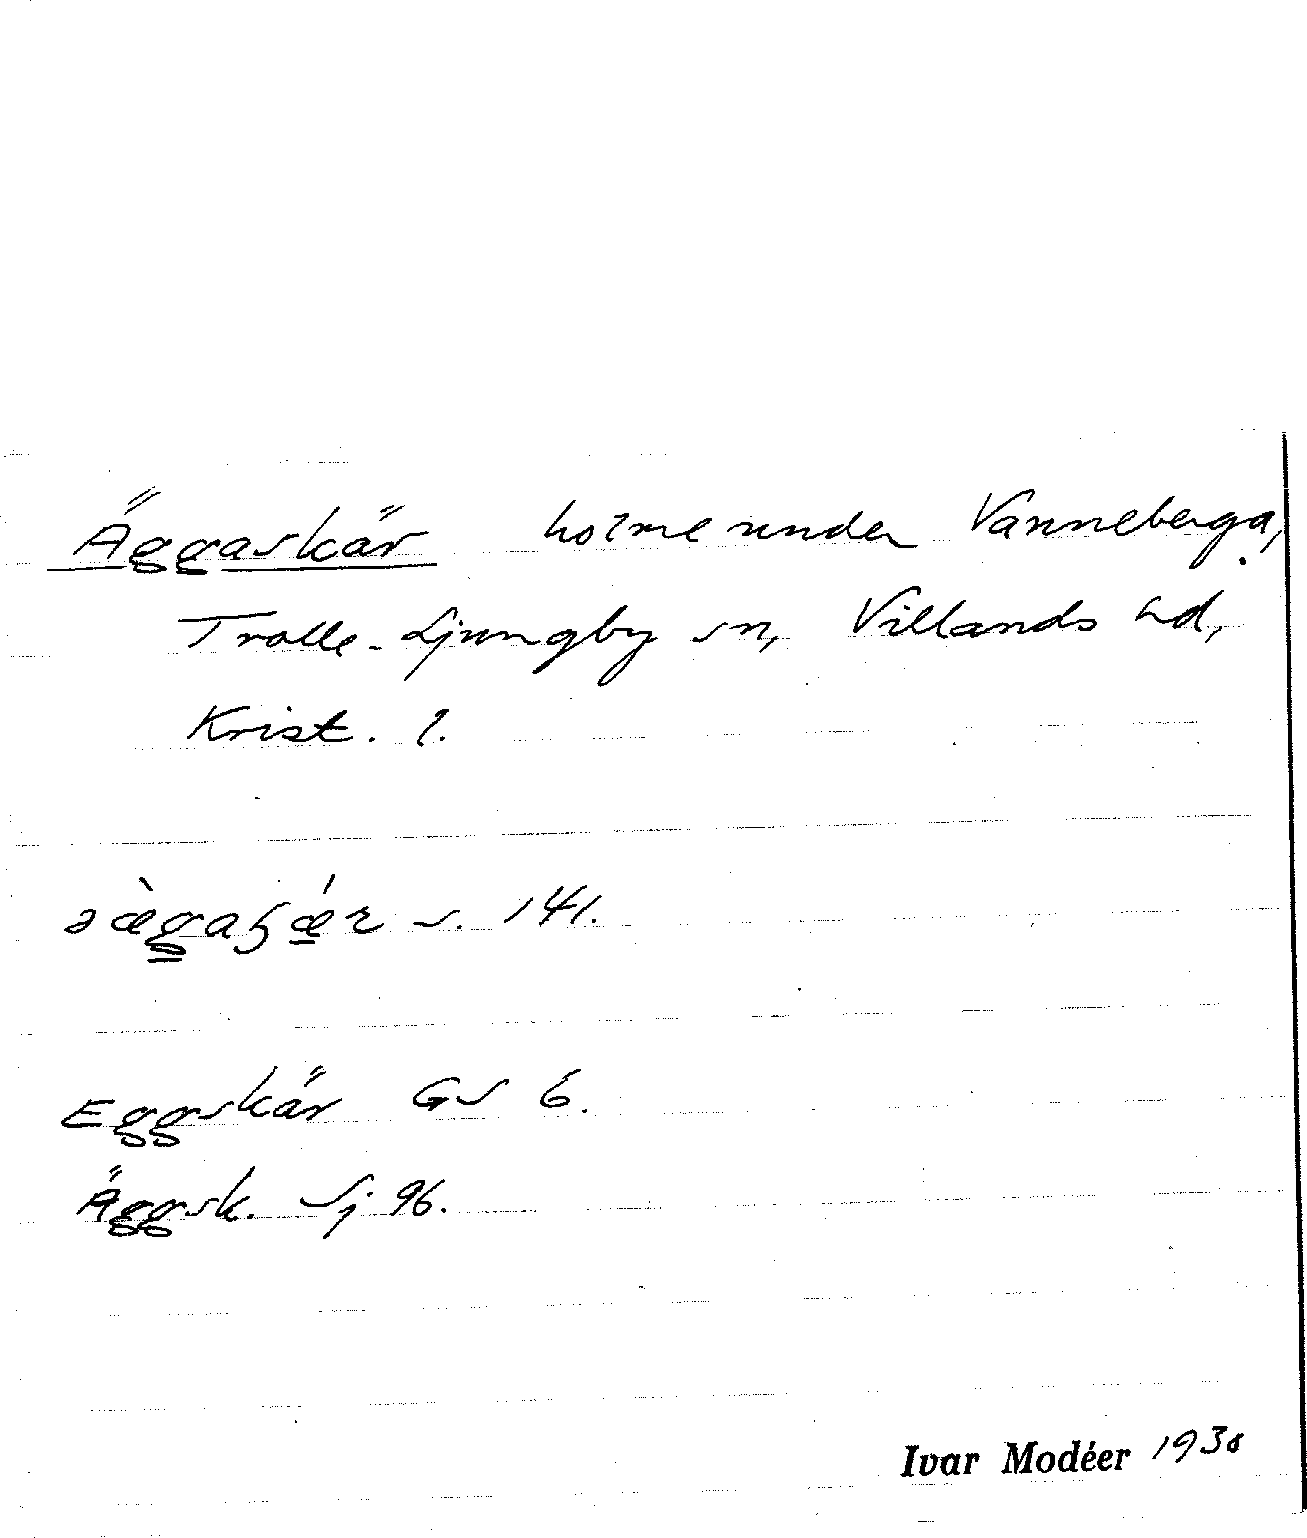 Äggaskär holme under Vanneberga,
Trolle-Ljungby sn, Villands hd,
Krist. l.
s. 141.
Eggskär GS 6.
Äggsk. Sj 96.
Ivar Modéer 1938